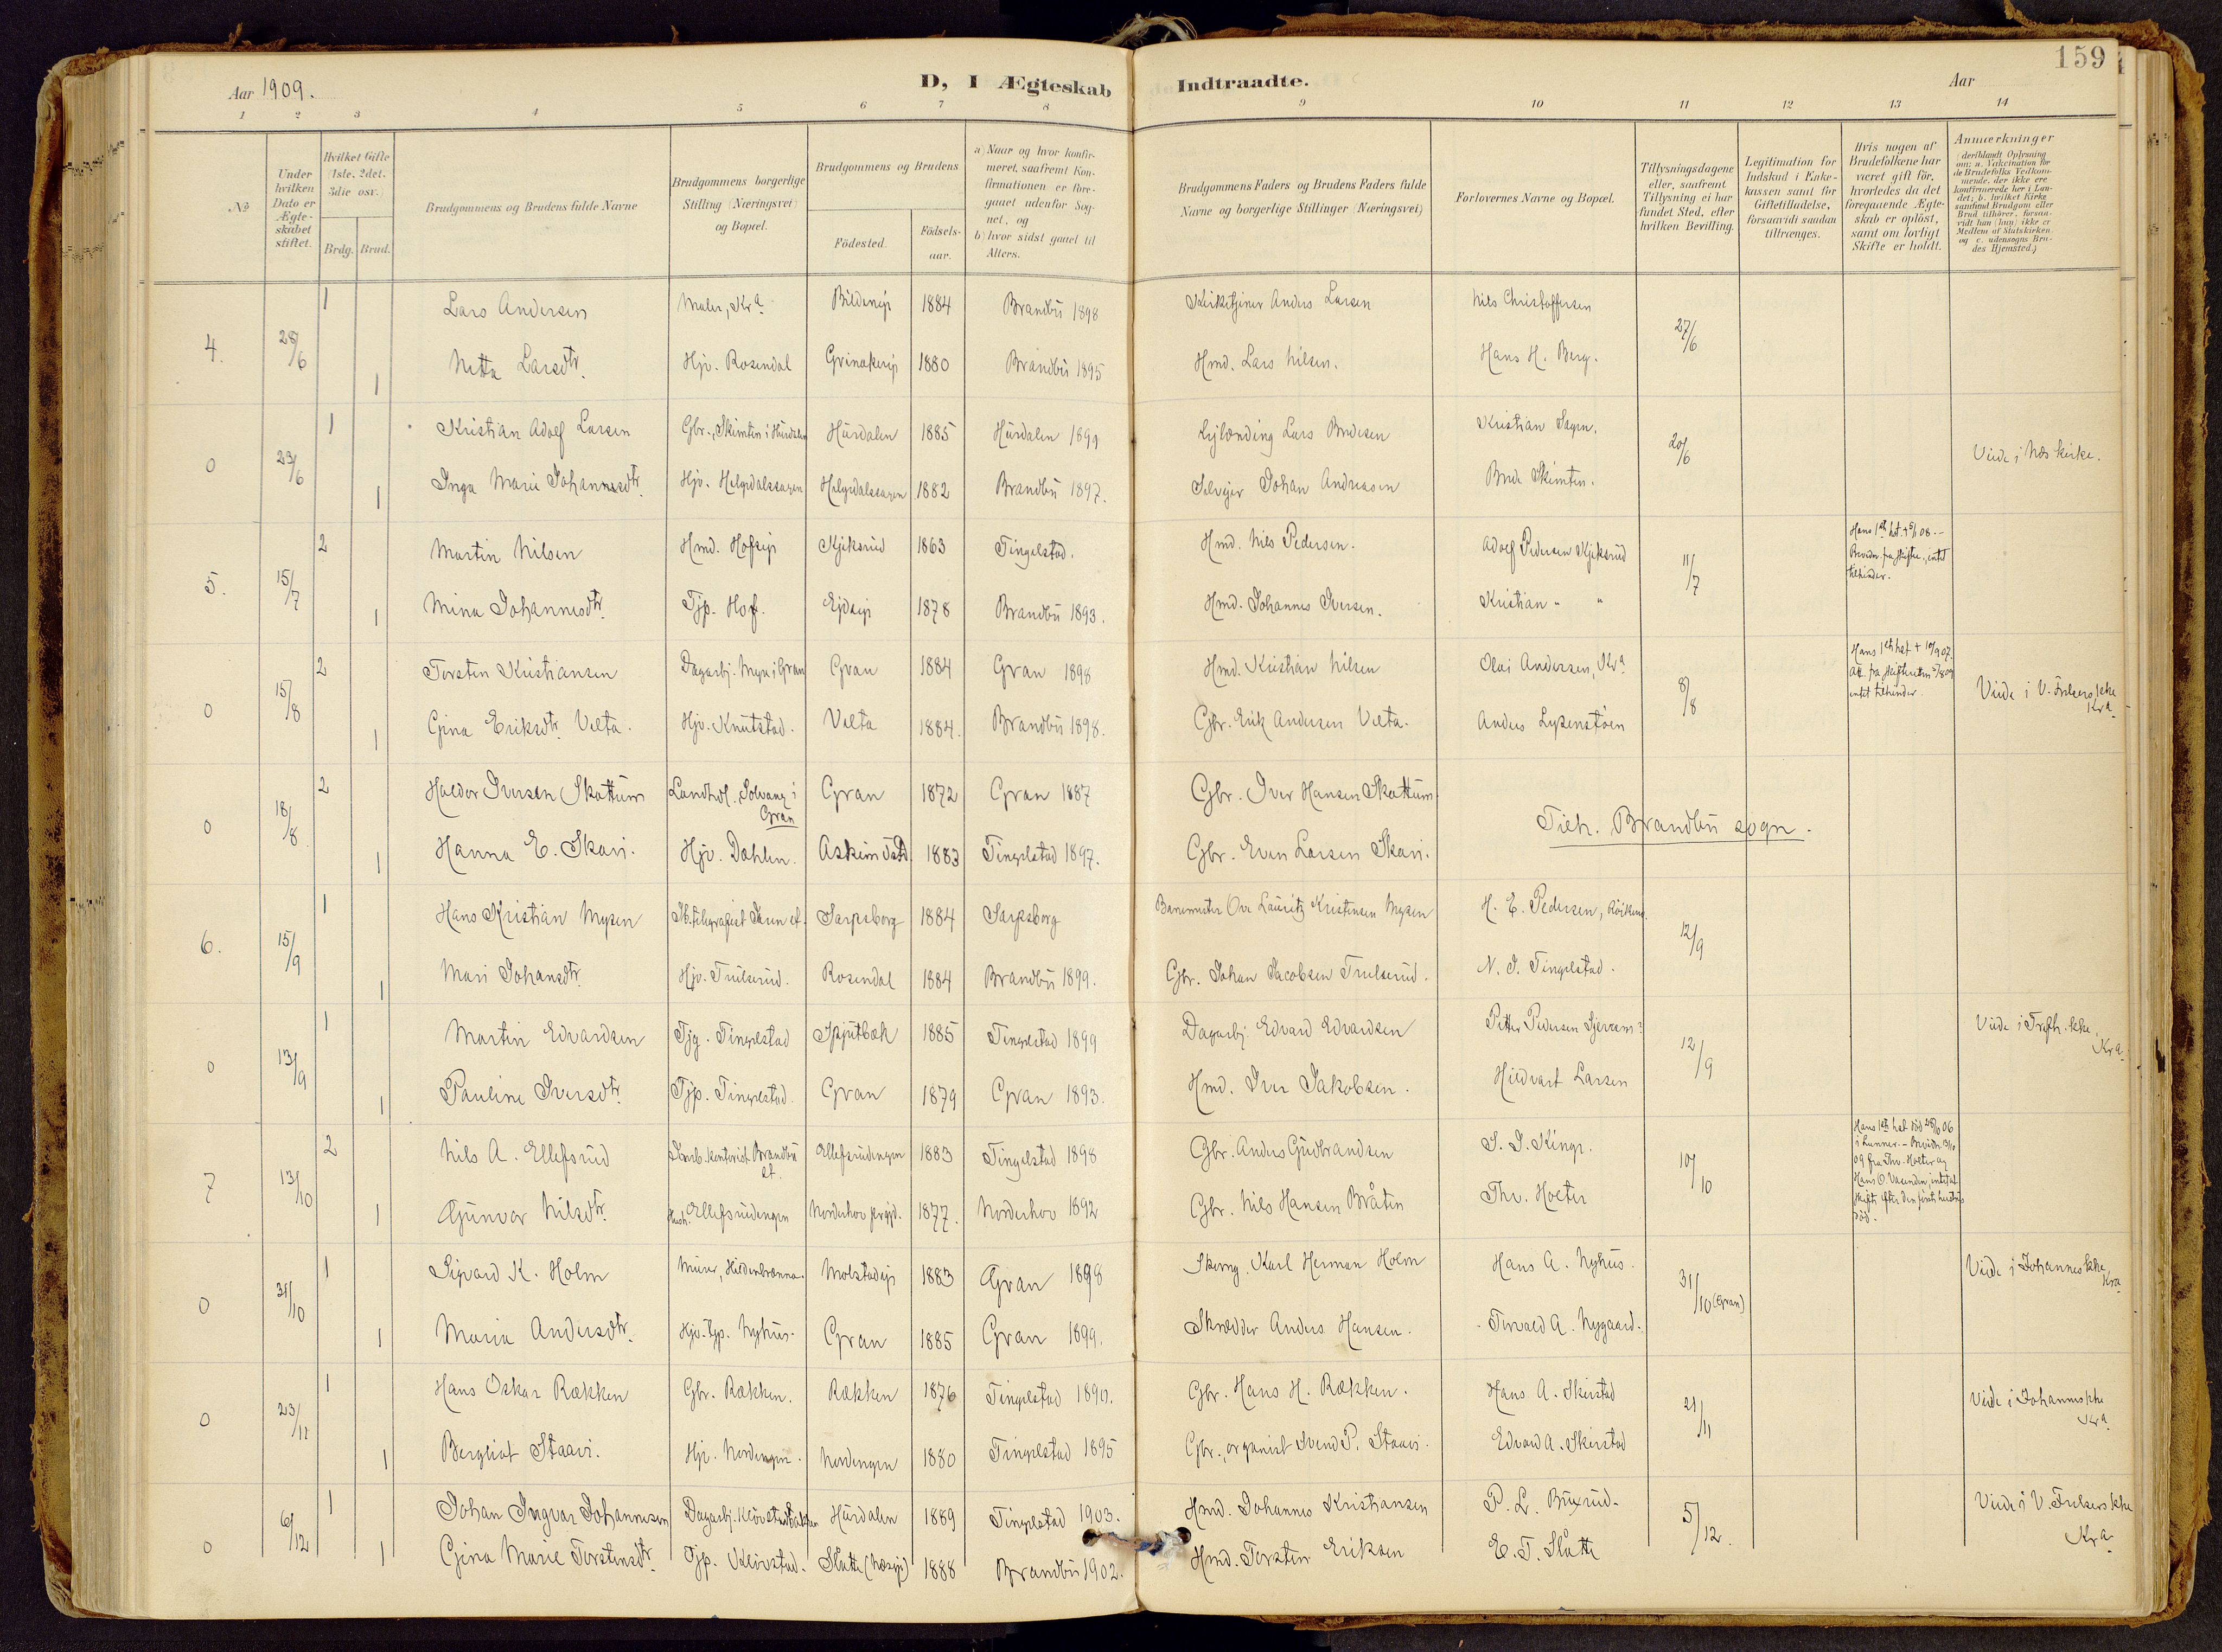 159
Aar 1909.
D, I Ægteskab Indtraadte.
Aar
1 2 3 4 5 6 7 8 9 10 11 12 13 14
№
Under hvilken Dato er Ægteskabet stiftet.
Hvilket Gifte (1ste, 2det, 3die osv.)
Brdg. Brud.
Brudgommens og Brudens fulde Navne
Brudgommens borgerlige Stilling (Næringsvei) og Bopæl.
Brudgommens og Brudens
Födested.
Födsels-aar.
a) Naar og hvor konfirmeret, saafremt Konfirmationen er foregaaet udenfor Sognet, og
b) hvor sidst gaaet til Alters.
Brudgommens Faders og Brudens Faders fulde Navne og borgerlige Stillinger (Næringsvei)
Forlovernes Navne og Bopæl.
Tillysningsdagene eller, saafremt Tillysning ei har fundet Sted, efter hvilken Bevilling.
Legitimation for Indskud i Enkekassen samt for Giftetilladelse, forsaavidt saadan tiltrænges.
Hvis nogen af Brudefolkene har været gift för, hvorledes da det foregaaende Ægteskab er oplöst, samt om lovligt Skifte er holdt.
Anmærkninger
4. 28/6 1 Lars Andersen Maler, Kra Bildeneje 1884 Brandbu 1898 Kirketjener Anders Larsen Nils Christoffersen 27/6
1 Netta Larsdtr. Hjv. Rosendal Grinakereje 1880 Brandbu 1895 Hmd. Lars Nilsen. Hans H. Berg.
0 23/6 1 Kristian Adolf Larsen Gbr., Skimten i Hurdalen Hurdalen 1885 Hurdalen 1899 Lars Brede Kristian 20/6 Viede i Næs kirke.
1 Inga Marie Johannesdtr. Hjv. Helgedalssagen Helgedalssagen 1882 Brandbu 1897. Selvejer Johan Andreasen Brede Skimten.
5. 15/7 2 Martin Nilsen Hmd. Hofseje Kjiksrud 1863 Tingelstad. Hmd. Nils Pedersen. Adolf Pedersen Kjiksrud 11/7 Hans 1ste hst. + 5/1 08. - Bevidn. fra skifter, intet tilhinder.
1 Mina Johannesdtr. Tjp. Hof. 1878 Brandbu 1893. Hmd. Johannes Iversen. Kristian " "
0 15/8 2 Torsten Kristiansen Dagarbj. Myre i Gran Gran 1884 Gran 1898 Hmd. Kristian Nilsen Olai Andersen, Kra 8/8 Hans 1ste hst + 10/9 07. Att. fra skifteretten intet tilhinder. Viede i V. Frelsers kke Kra.
1 Gina Eriksdtr. Velta. Hjv. Knutstad. Velta 1884. Brandbu 1898. Gbr. Erik Andersen Velta. Anders Lysenstöen
0 18/8 2 Haldor Iversen Skattum Landhdl. Solvang i Gran Gran 1872 Gran 1887 Gbr. Iver Hansen Skattum Tilh. Brandbu sogn.
1 Hanna E. Skari. Hjv. Dahlen. Askim 1883 Tingelstad 1897. Gbr. Even Larsen Skari.
6. 15/9 1 Hans Kristian Mysen Jb. telegrafist Jaren st. Sarpsborg 1884 Sarpsborg Banemester Ove Lauritz Kristensen Mysen H. E. Pedersen, Röiken 12/9
1 Mari Johansdtr. Hjv. Trulserud. Rosendal 1884 Brandbu 1899. Gbr. Johan Jacobsen Trulserud. N. J. Tingelstad.
0 13/9 1 Martin Edvardsen Tjg. Tingelstad Spjutbæk 1885 Tingelstad 1899 Dagarbj. Edvard Edvardsen Petter Pedersen 12/9 Viede i Trefh. kke Kra.
1 Pauline Iversdtr. Tjp. Tingelstad. Gran 1879 Gran 1893. Hmd. Iver Jakobsen. Hildvart Larsen
7 13/10 2 Nils A. Ellefsrud Jernb. kontorist. Brandbu st. Ellefsrudengen 1883 Tingelstad 1898 Gbr. Anders Gudbrandsen S. J. Kinge. 10/10 Hans 1ste hst död 28/10 06 i Lunner. - Bevidn. 13/10 09 fra Thv. Holter og Hans O. Vasenden, intet at skifte efter den första hustrus död.
1 Gunvor Nilsdtr. Hush. Ellefsrudengen Norderhov prgjd. 1877. Norderhov 1892 Gbr. Nils Hansen Bråten Thv. Holter
0 31/10 1 Sigvard K. Holm Murer, Hildenbrænna. Molstadeje 1883 Gran 1898 Skomg. Karl Herman Holm Hans A. Nyhus. 31/10 (Gran) Viede i Johannes kke Kra.
1 Maria Andersdtr. Hjv. Nyhus. Gran 1885 Gran 1899. Skrædder Anders Hansen. Torvald A. Nygaard.
0 23/11 1 Hans Oskar Rækken Gbr. Rækken. Rækken 1876 Tingelstad 1890. Gbr. Hans H. Rækken. Hans A. Skirstad 21/11 Viede i Johannes kke Kra.
1 Bergliot Staavi. Hjv. Nordengen. Nordengen 1880 Tingelstad 1895 Gbr., organist Svend P. Staavi. Edvard A. Skirstad
0 6/12 1 Johan Ingvar Johannesen Dagarbj. Klövstadbakken Hurdalen 1889 Tingelstad 1903. Hmd. Johannes Kristiansen P. L. Buxrud. 5/12. Viede i V. Frelsers kke Kra.
1 Gina Marie Torstensdtr. Tjp. Klövstad. Slatte (Næseje) 1888 Brandbu 1902. Hmd. Torsten Eriksen E. T. Slåtte